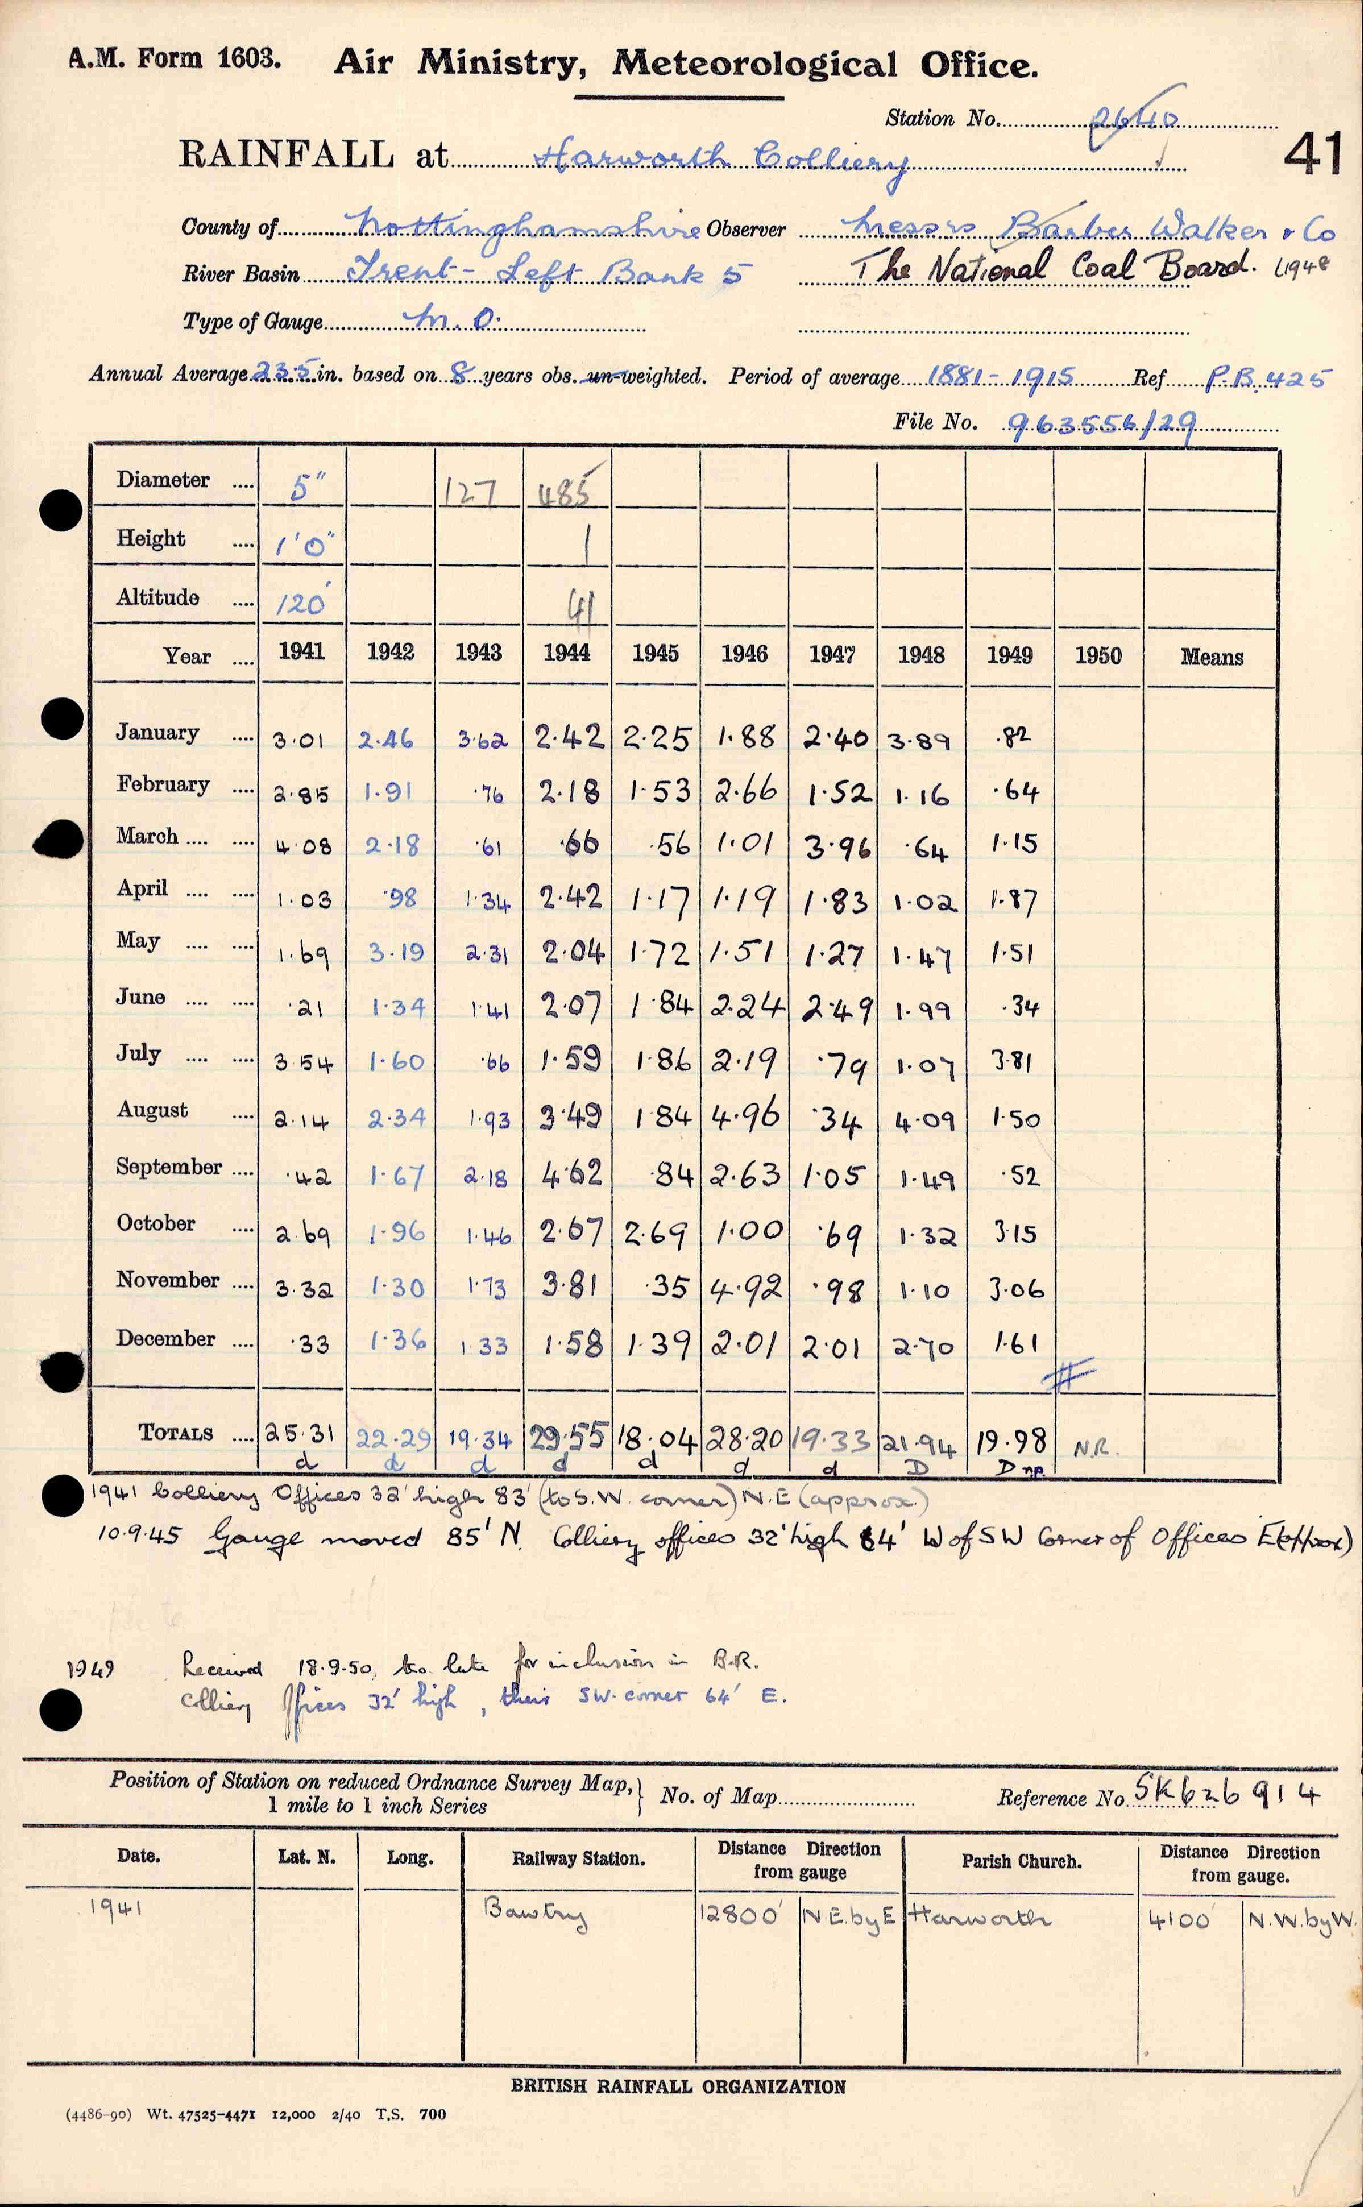 A.M. Form 1603. Air Ministry, Meteorological Office.
Station No. 2640
RAINFALL at Harworth Colliery 41
County of Nottinghamshire Observer Messrs Barber Walker & Co
River Basin Trent - Left Bank 5 The National Coal Board. 1948
Type of Gauge M.O.
Annual Average 23.5 in. based on 8 years obs. un-weighted. Period of average 1881-1915 Ref P.B. 425
File No. 963556/29
Diameter .... 5" 127 485
Height .... 1'0" 1
Altitude .... 120' 41
Year .... 1941 1942 1943 1944 1945 1946 1947 1948 1949 1950 Means
January .... 3.01 2.46 3.62 2.42 2.25 1.88 2.40 3.89 .82
February .... 2.85 1.91 .76 2.18 1.53 2.66 1.52 1.16 .64
March .... .... 4.08 2.18 .61 .66 .56 1.01 3.96 .64 1.15
April .... .... 1.03 .98 1.34 2.42 1.17 1.19 1.83 1.02 1.87
May .... .... 1.69 3.19 2.31 2.04 1.72 1.51 1.27 1.47 1.51
June .... .... .21 1.34 1.41 2.07 1.84 2.24 2.49 1.99 .34
July .... .... 3.54 1.60 .66 1.59 1.86 2.19 .79 1.07 3.81
August .... 2.14 2.34 1.93 3.49 1.84 4.96 .34 4.09 1.50
September .... .42 1.67 2.18 4.62 .84 2.63 1.05 1.49 .52
October .... 2.69 1.96 1.46 2.67 2.69 1.00 .69 1.32 3.15
November .... 3.32 1.30 1.73 3.81 .35 4.92 .98 1.10 3.06
December .... .33 1.36 1.33 1.58 1.39 2.01 2.01 2.70 1.61
#
TOTALS .... 25.31 22.29 19.34 29.55 18.04 28.20 19.33 21.94 19.98 N.R.
d d d d d d d D D np
1941 Colliery Offices 32' high 83' (to S.W. corner) N.E (approx.)
10.9.45 Gauge moved 85' N. Colliery offices 32' high 64' W of SW Corner of Offices E (approx)
1949 Received 18.9.50, too late for inclusion in B.R.
Colliery Offices 32' high, their SW. corner 64' E.
Position of Station on reduced Ordnance Survey Map,} No. of Map Reference No. SK626914
1 mile to 1 inch Series
Date. Lat. N. Long. Railway Station. Distance Direction from gauge Parish Church. Distance Direction from gauge.
1941 Bawtry 12800' N E. by E Harworth 4100' N.W. by W.
BRITISH RAINFALL ORGANIZATION
(4486-90) Wt. 47525-4471 12,000 2/40 T.S. 700